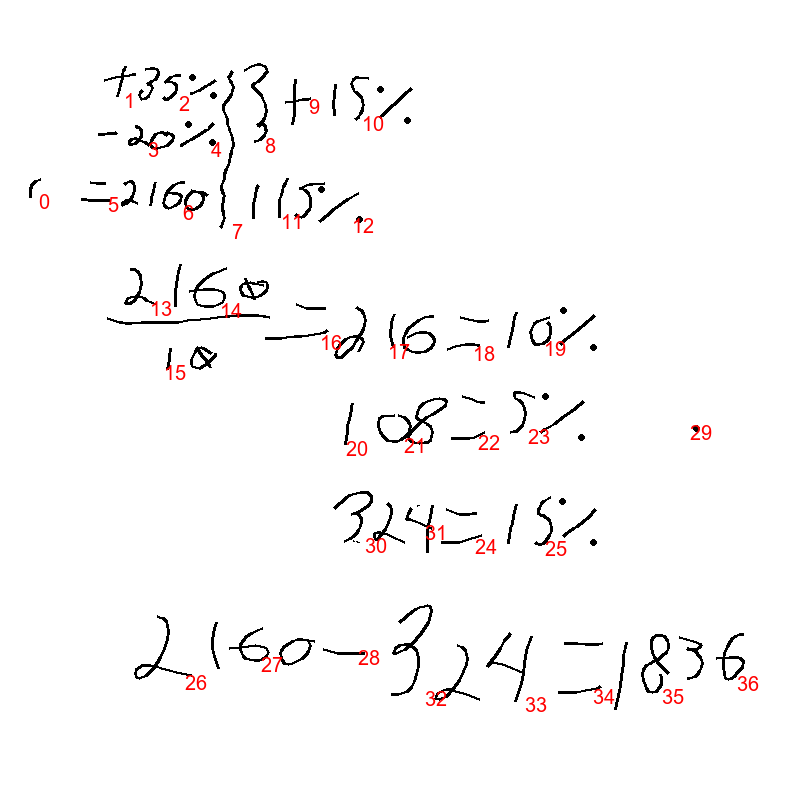 +35% } +15%
-20%
r = 2160 115%
2160/10 = 216 = 10%
108 = 5%
324 = 15%
2160 - 324 = 1836
0 1 2 3 4 5 6 7 8 9 10 11 12 13 14 15 16 17 18 19 20 21 22 23 29 30 31 24 25 26 27 28 32 33 34 35 36